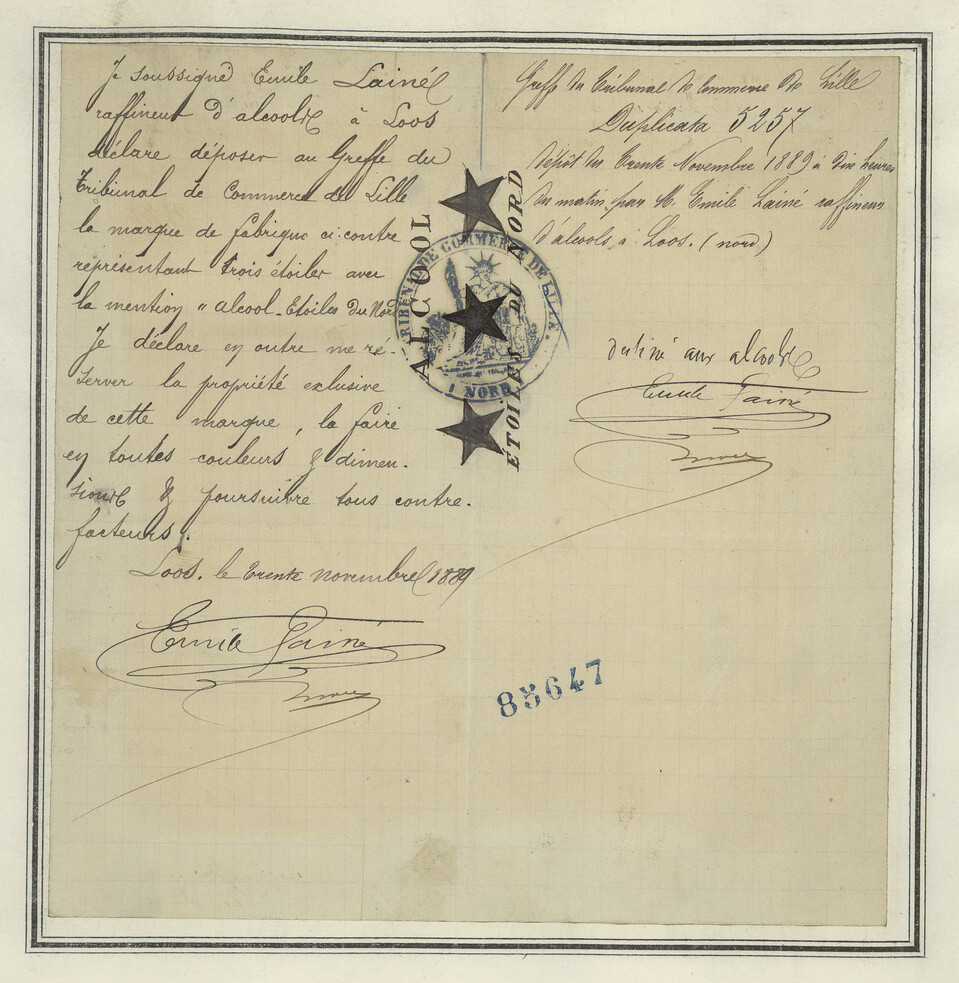 Je soussigné Emile Lainé
raffineur d'alcools à Loos
déclare déposer au Greffe du
Tribunal de Commerce de Lille
la marque de fabrique ci contre
représentant trois étoiles avec
la mention " alcool - Etoiles du Nord
Je déclare en outre me ré-
server la propriété exclusive
de cette marque, la faire
en toutes couleurs & dimen-
sions & poursuivre tous contre-
facteurs.
Loos, le trente novembre 1889
Emile Lainé
ALCOOL
ÉTOILES DU NORD
TRIBUNAL DE COMMERCE DE LILLE.
(NORD)
Greffe du Tribunal de Commerce de Lille
Duplicata 5257
Dépôt du trente Novembre 1889 à dix heures
du matin par M. Emile Lainé raffineur
d'alcools à Loos. (nord)
destiné aux alcools
Emile Lainé
85647